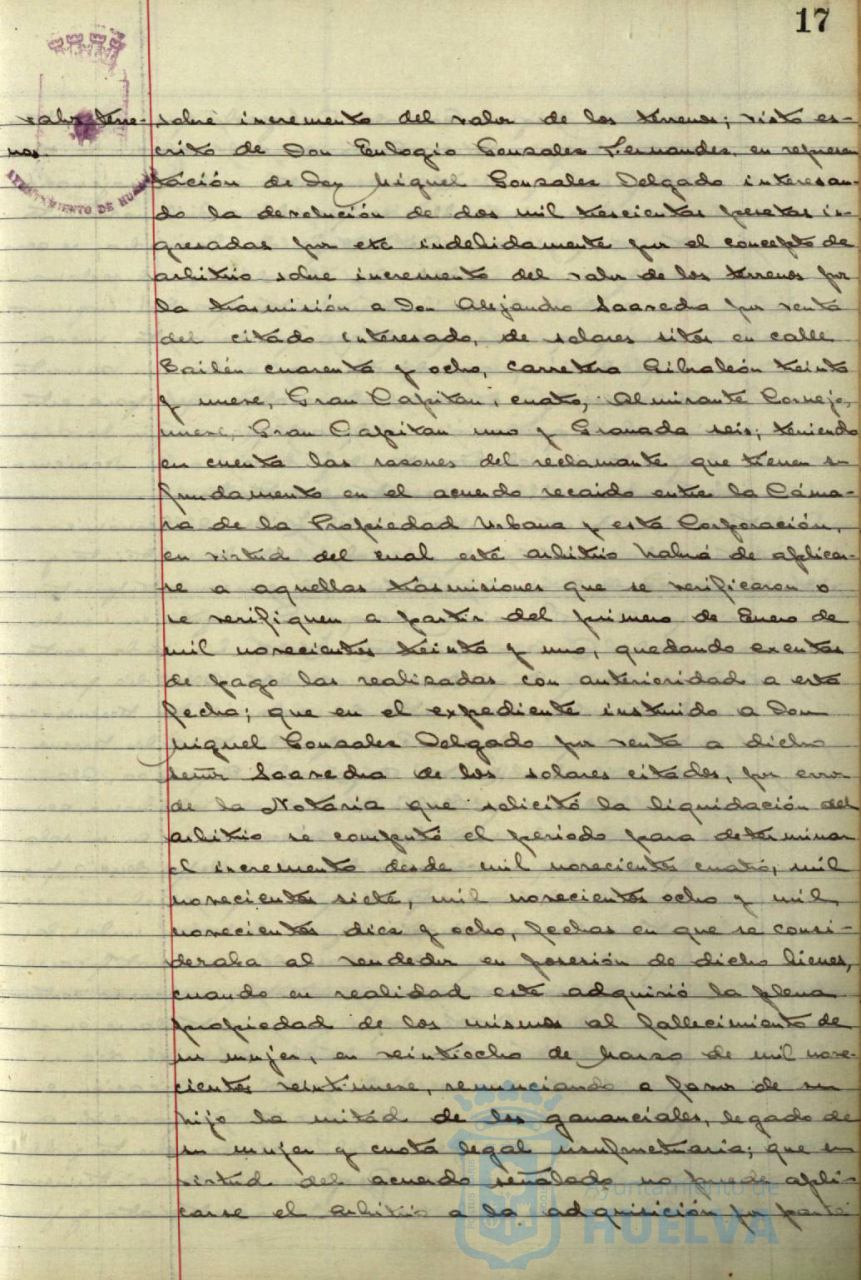 17
valor terre-
nos.
AYUNTAMIENTO DE HUELVA
sobre incremento del valor de los terrenos; visto es-
crito de Don Eulogio Gonzales Fernandes, en represen
tación de Don Miguel Gonzales Delgado interesan-
do la devolución de dos mil trescientas pesetas in-
gresadas por este indebidamente por el concepto de
arbitrio sobre incremento del valor de los terrenos por
la trasmisión a Don Alejandro Saavedra por venta
del citado interesado, de solares sitos en calle
Bailén cuarenta y ocho, carretera Gibraleón treinta
y nueve, Gran Capitan, cuatro, Almirante Cornejo,
nueve, Gran Capitan uno y Granada seis; teniendo
en cuenta las razones del reclamante que tienen su
fundamento en el acuerdo recaido entre la Cáma-
ra de la Propiedad Urbana y esta Corporación,
en virtud del cual este arbitrio habrá de aplicar-
se a aquellas trasmisiones que se verificaron o
se verifiquen a partir del primero de Enero de
mil novecientos treinta y uno, quedando exentas
de pago las realizadas con anterioridad a esta
fecha; que en el expediente instruido a Don
Miguel Gonzales Delgado por venta a dicho
señor Saavedra de los solares citados, por error
de la Notaria que solicitó la liquidación del
arbitrio se computó el período para determinar
el incremento desde mil novecientos cuatro, mil
novecientos siete, mil novecientos ocho y mil
novecientos diez y ocho, fechas en que se consi-
deraba al vendedor en posesión de dicho bienes,
cuando en realidad este adquirió la plena
propiedad de los mismos al fallecimiento de
su mujer, en veintiocho de Marzo de mil nove-
cientos veintinueve, renunciando a favor de su
hijo la mitad de los gananciales, legado de
su mujer y cuota legal usufructuaria; que en
virtud del acuerdo señalado no puede apli-
carse el arbitrio a la adquisición por parte
Ayuntamiento de
HUELVA